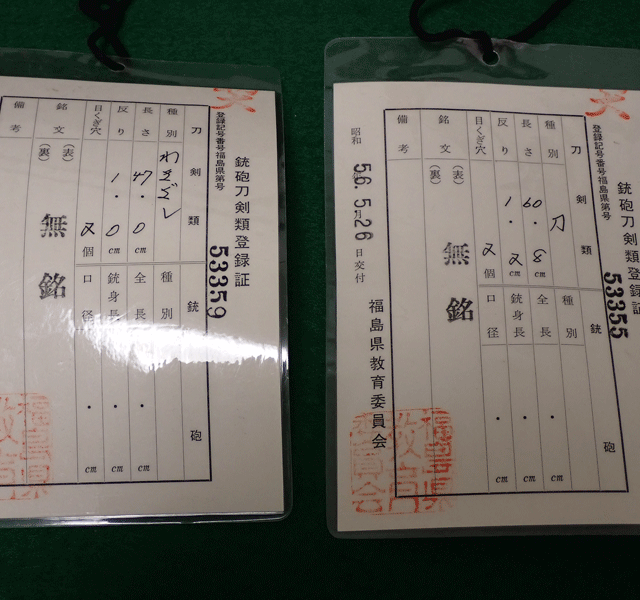 銃砲刀剣類登録証
登録記号番号福島県第 号
53359
刀剣類
銃砲
種別 わきざし
種別
長さ 47.0 cm
全長 . cm
反り 1.0 cm
銃身長 . cm
目くぎ穴 2個
口径 . cm
銘文 (表) (裏) 無銘
備考
銃砲刀剣類登録証
登録記号番号福島県第 号
53355
刀剣類
銃砲
種別 刀
種別
長さ 60.8 cm
全長 . cm
反り 1.2 cm
銃身長 . cm
目くぎ穴 2個
口径 . cm
銘文 (表) (裏) 無銘
備考
昭和56.5月26日交付
福島県教育委員会
福島県教育委員会